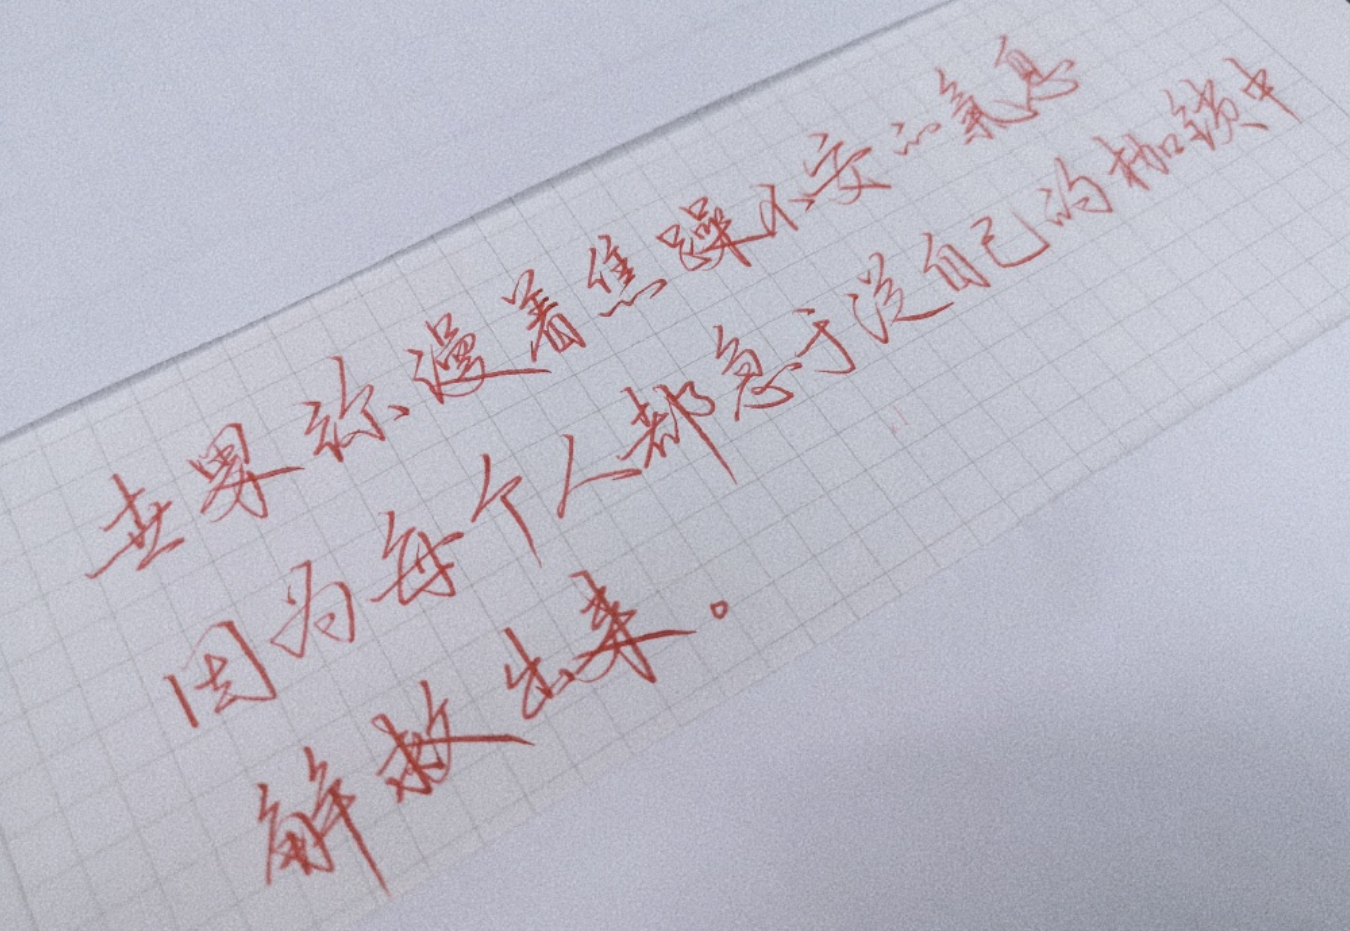 世界弥漫着焦躁不安的氣息
因为每个人都急于從自己的枷锁中
解救出来。